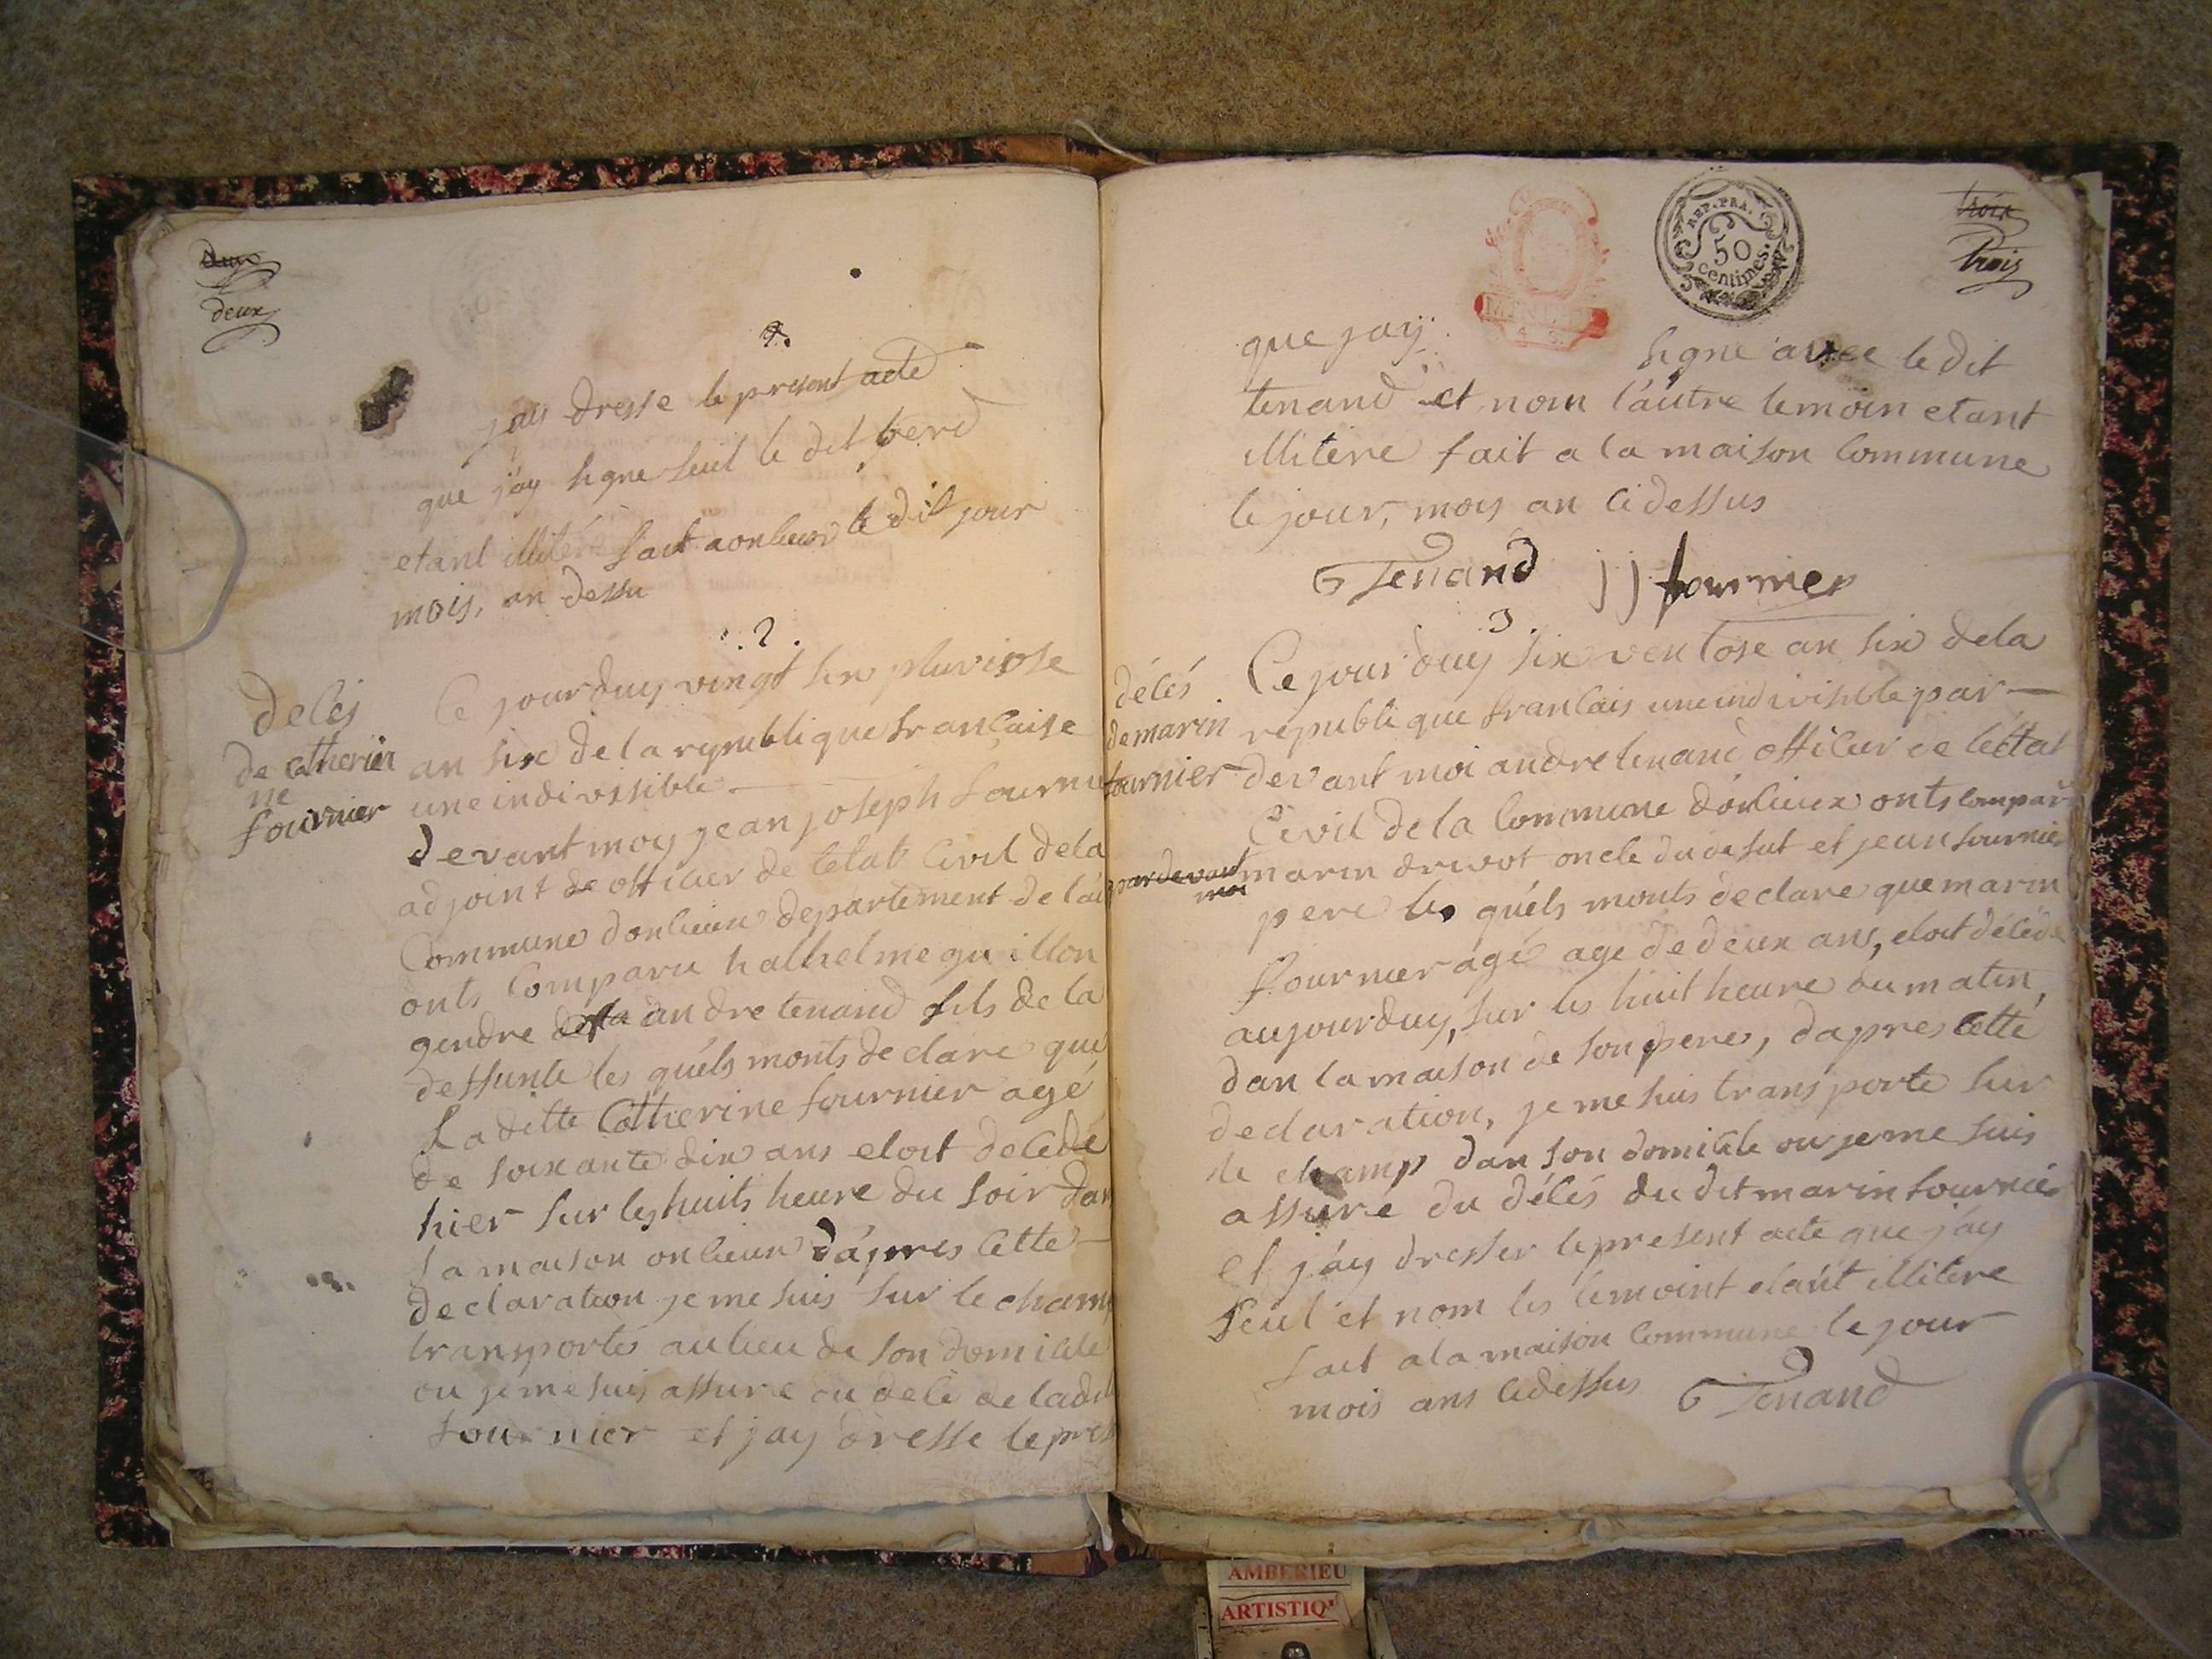 deux
deux
jais dresse le present acte
que j'ay signe seul le dit berd
etant illitéré fait a onlieux le dit jour
mois, an dessu
2.
décés
de catherin
ne
fournier
Ce jourduy vingt six pluviose
an six de la republique francaise
une indivisible
devant moy jean joseph fournie
adjoint de officier de letat civil de la
Commune donlieux departement de l'ain
onts comparu halhelme guillon
gendre andre tenand fils de la
deffunte les quéls monts declare que
la ditte Catherine fournier agé
de soixante dix ans etoit decede
hier sur les huits heure du soir dan
sa maison onlieux d'apres cette
declaration je me suis sur le champ
transportés au lieu de son domicile
ou je me suis assure du decé de ladit
fournier et jay dresse le pres
REP. FRA.
50
centimes.
trois
trois
que jay signé avec le dit
tenand et nom l'autre temoin etant
illitere fait a la maison commune
le jour, mois an ci dessus
Tenand jj fournier
3.
décés
de marin
fournier
Ce jour duy six ventose an six de la
republique francais une indivisible par
devant moi andre tenand officier de léttat
Civil de la Commune dónlieux onts compar
par devant
moi
marin drivot oncle du defut et jean fournier
pere les quéls monts declare que marin
fournier agé age de deux ans, etoit décédé
aujourduy, sur les huit heure du matin,
dan la maison de son pere, dapres cette
declaration, je me suis transporte sur
le champ dan son domicile ou je me suis
assuré du décés du dit marin fournier
et j'ay dresser le present acte que j'ay
seul et nom les temoint etant illitere
fait a la maison commune le jour
mois ans cidessus Tenand
AMBERIEU
ARTISTIQ'